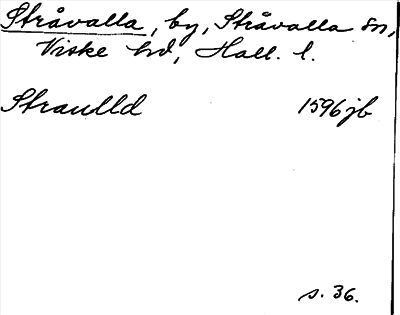 Stråvalla, by, Stråvalla sn,
Viske hd, Hall. l.
Straulld 1596 jb
s. 36.